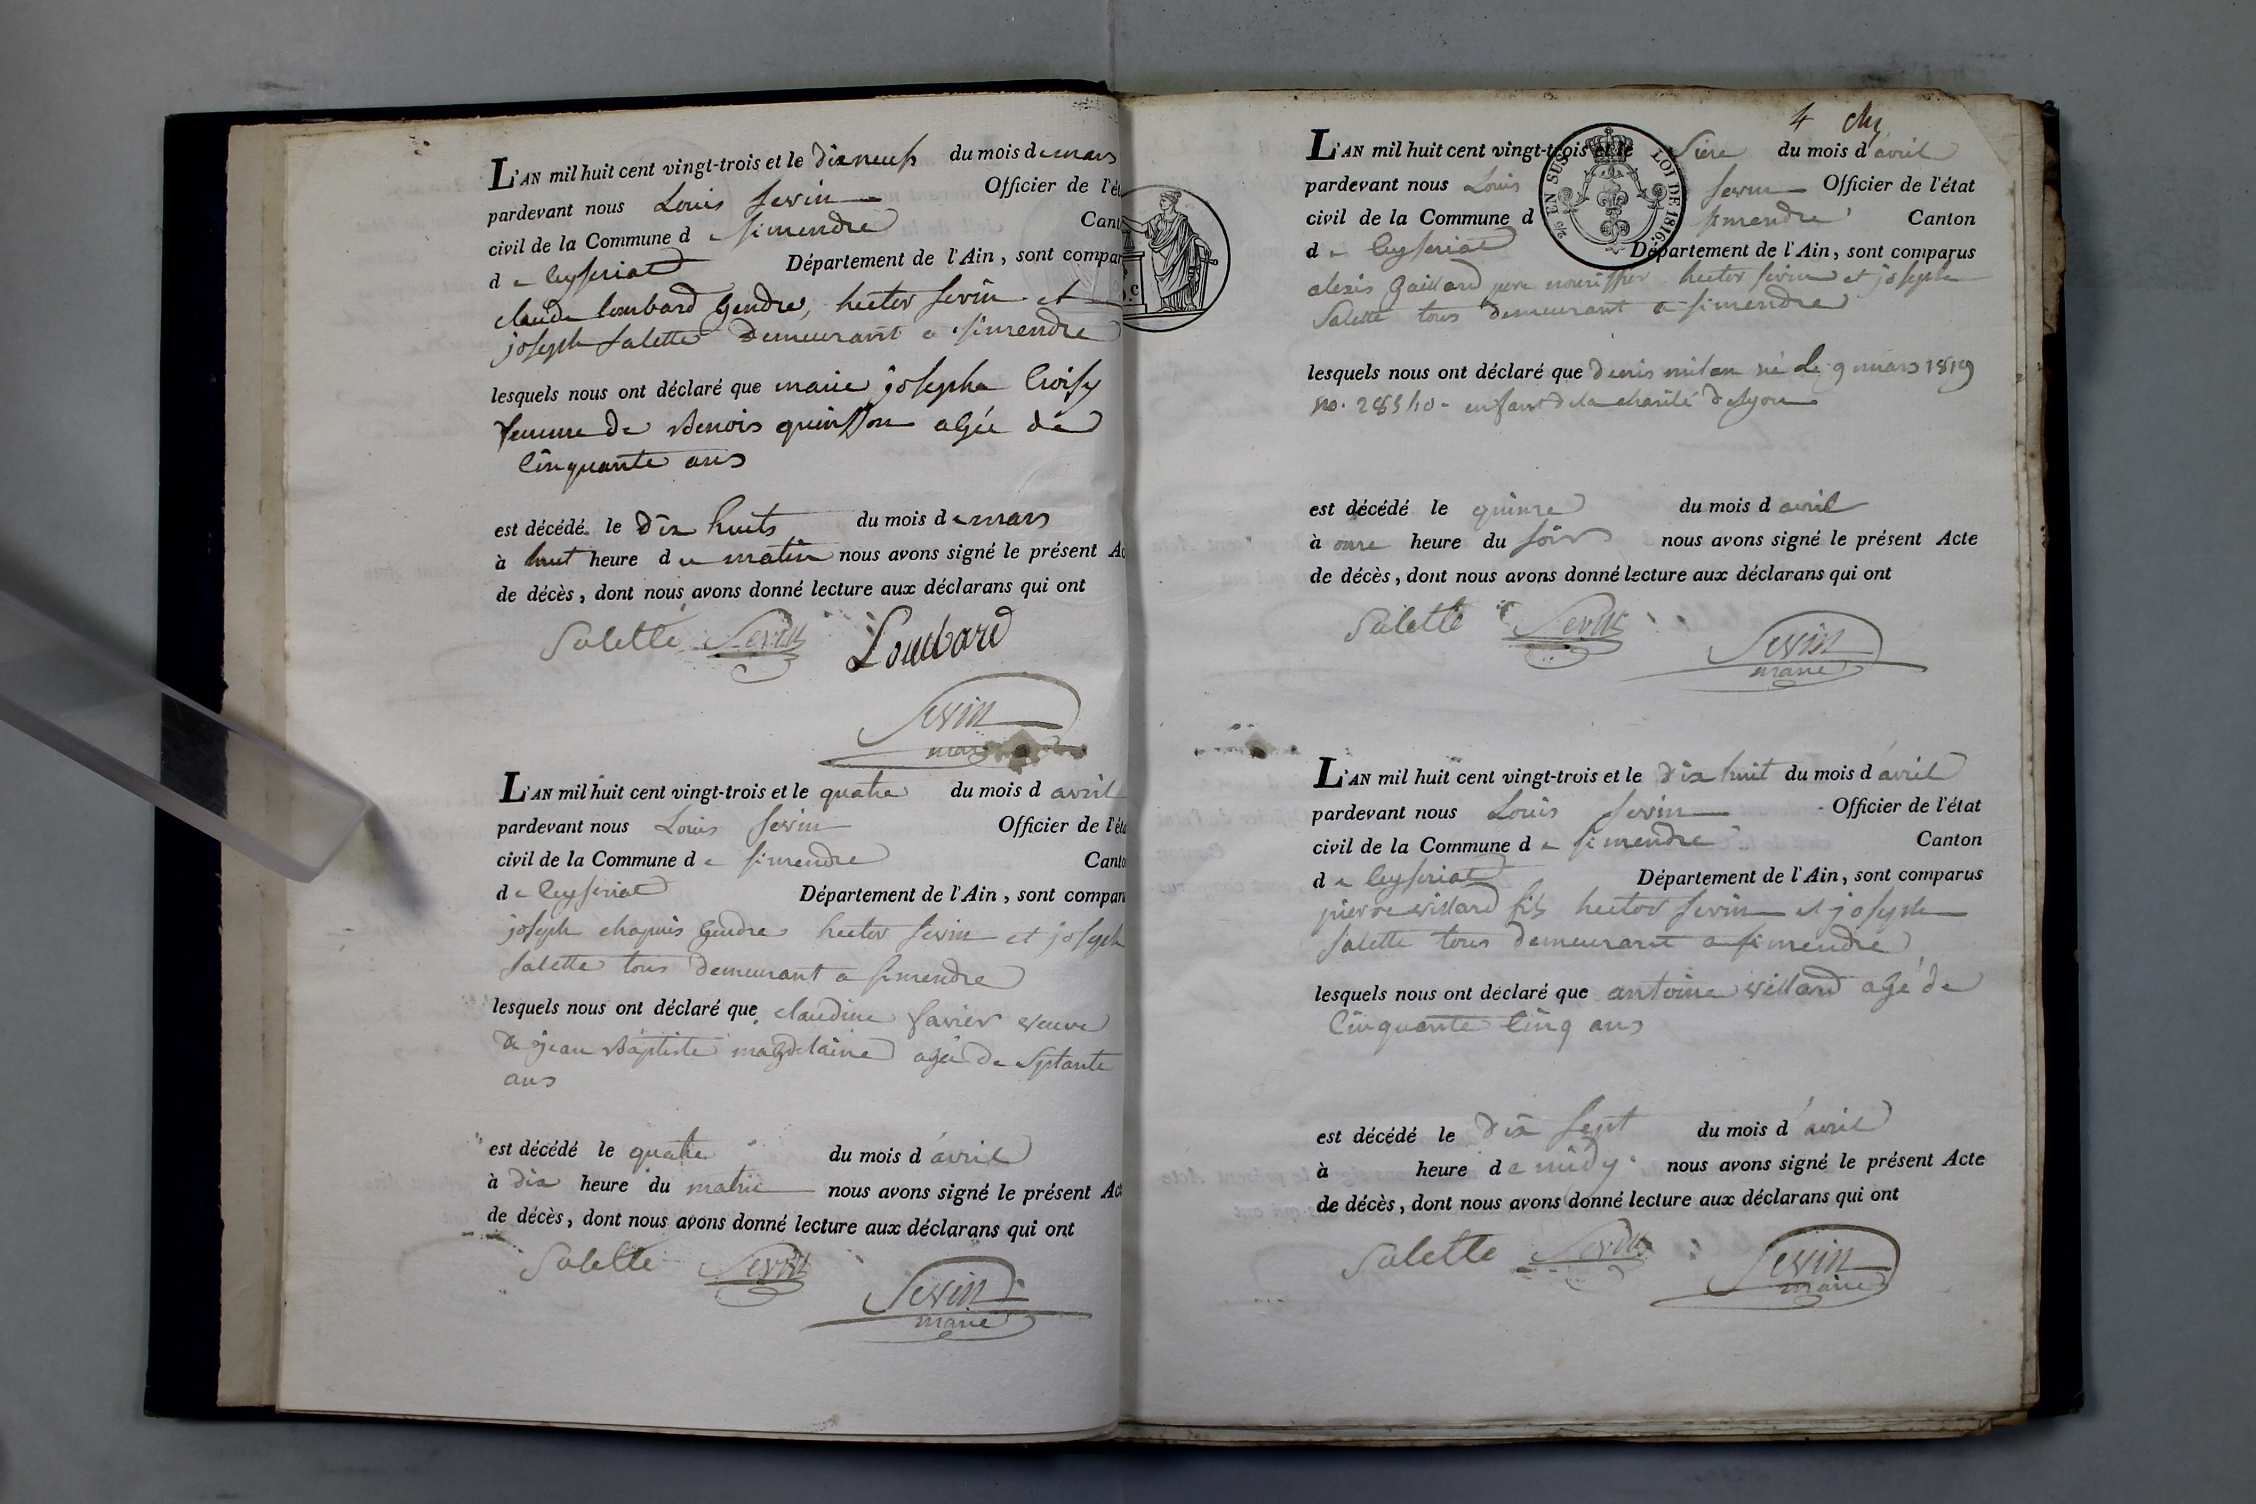 L'AN mil huit cent vingt-trois et le dix neufs du mois de mars
pardevant nous Louis sevin Officier de l'ét
civil de la Commune de simendre Cant
de Ceyseriat Département de l'Ain, sont compar
claude lombard gendre, hector sevin et
joseph salette demeurant a simendre
lesquels nous ont déclaré que marie josephe Croisy
femme de Benois quinsson agée de
Cinquante ans
est décédé le dix huits du mois de mars
à huit heure du matin nous avons signé le présent Ac
de décès, dont nous avons donné lecture aux déclarans qui ont
Salette Sevin Lombard
Sevin
L'AN mil huit cent vingt-trois et le quatre du mois d avril
pardevant nous Louis sevin Officier de l'éta
civil de la Commune de simendre Canto
de Ceyseriat Département de l'Ain, sont comparu
joseph chapuis gendre hector sevin et joseph
salette tous demeurant a simendre
lesquels nous ont déclaré que claudine favier veuve
de jean Baptiste magdelaine agée de septante
ans
est décédé le quatre du mois d'avril
à dix heure du matin nous avons signé le présent Act
de décès, dont nous avons donné lecture aux déclarans qui ont
Salette Sevin
Sevin
maire
4
EN SUS LOI DE 1816.
L'AN mil huit cent vingt-trois et le seize du mois d'avril
pardevant nous Louis sevin Officier de l'état
civil de la Commune d simendre Canton
de Ceyseriat Département de l'Ain, sont comparus
alexis Gaillard pere nourissier hector sevin et joseph
Salette tous demeurant a simendre
lesquels nous ont déclaré que denis milan né le 9 mars 1819
no. enfant de la charité de lyon
est décédé le quinze du mois d avril
à onze heure du soir nous avons signé le présent Acte
de décès, dont nous avons donné lecture aux déclarans qui ont
Salette Sevin
Sevin
maire
L'AN mil huit cent vingt-trois et le dix huit du mois d'avril
pardevant nous Louis sevin Officier de l'état
civil de la Commune de simendre Canton
de Ceyseriat Département de l'Ain, sont comparus
pierre villard fils hector sevin et joseph
salette tous demeurant a simendre
lesquels nous ont déclaré que antoine villard agé de
Cinquante Cinq ans
est décédé le dix sept du mois d'avril
à heure de midy nous avons signé le présent Acte
de décès, dont nous avons donné lecture aux déclarans qui ont
Salette Sevin
Sevin
maire